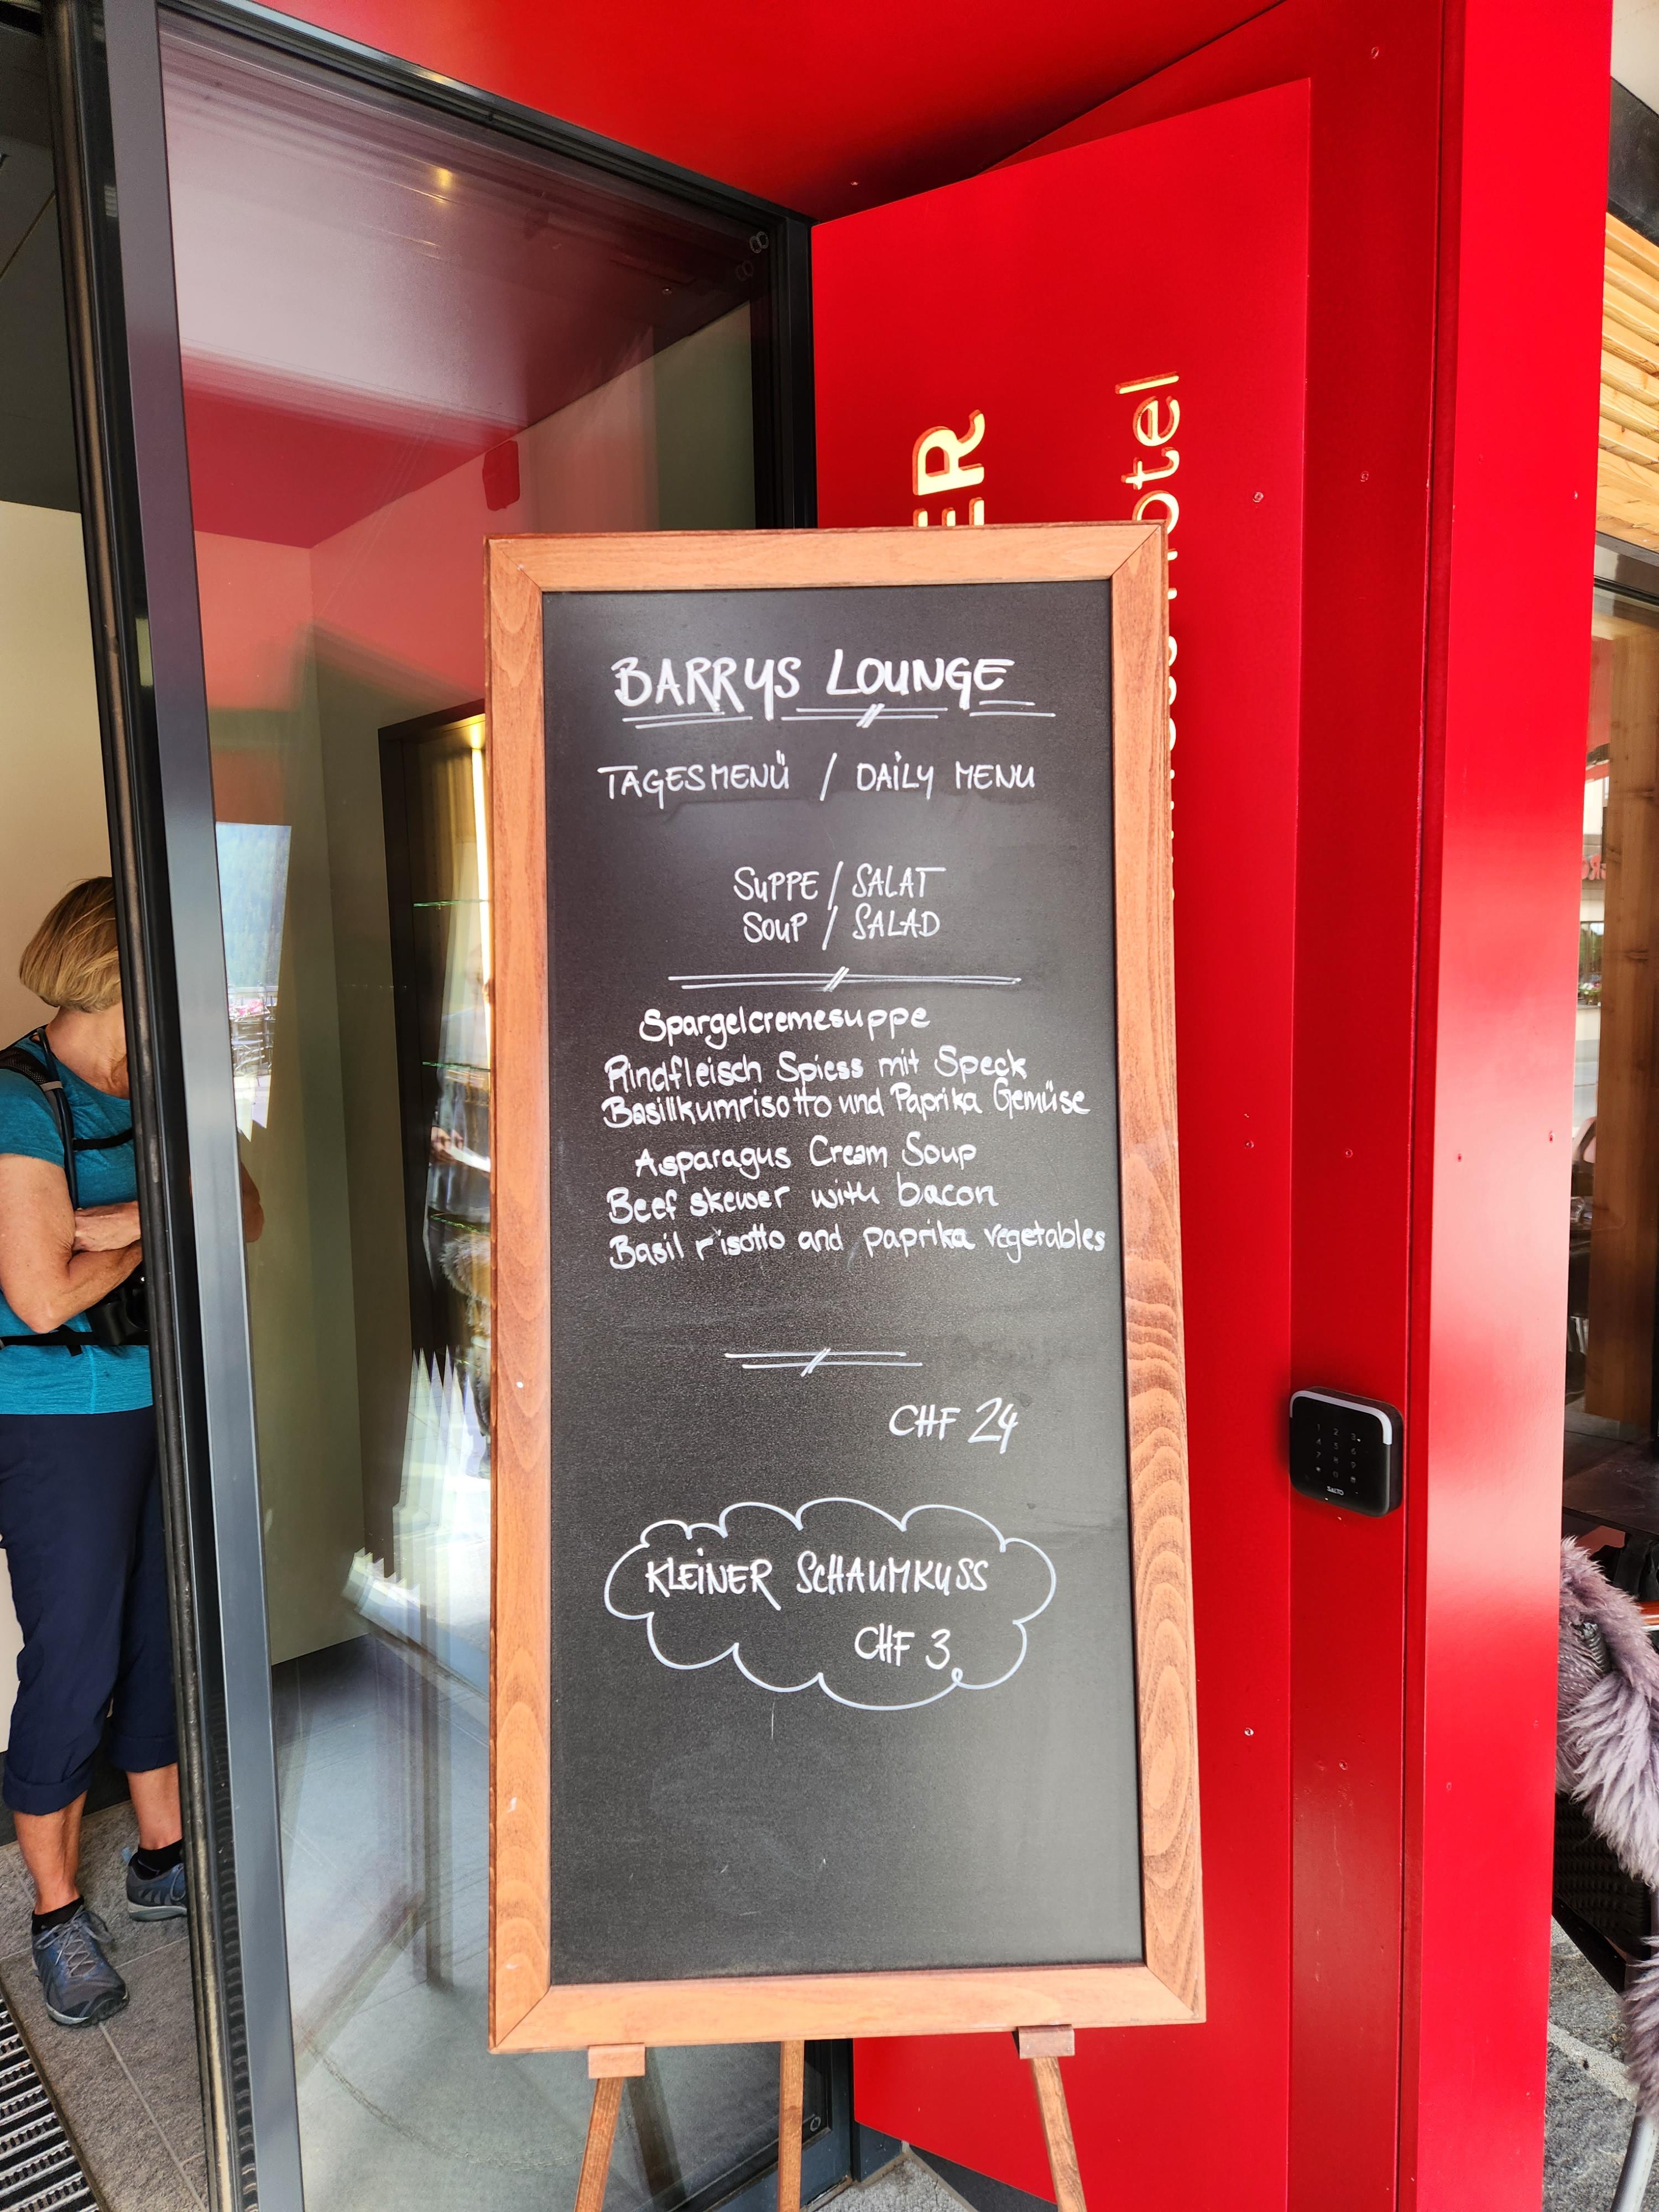 BARRYS LOUNGE
TAGESMENÜ / DAILY MENU
SUPPE / SALAT
SOUP / SALAD
Spargelcremesuppe
Rindfleisch Spiess mit Speck
Basilikumrisotto und Paprika Gemüse
Asparagus Cream Soup
Beef skewer with bacon
Basil risotto and paprika vegetables
CHF 24
KLEINER SCHAUMKUSS
CHF 3
ER
otel
1 2 3
4 5 6
7 8 9
0
SALTO